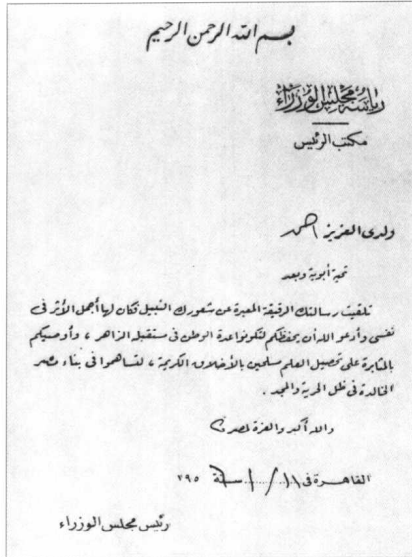 بسم الله الرحمن الرحيم
رياسة مجلس الوزراء
مكتب الرئيس
ولدى العزيز احمد
تحية أبوية وبعد
تلقيت رسالتك الرقيقة المعبرة عن شعورك النبيل فكان لها أجمل الأثر فى
نفسى وأدعو الله أن يحفظكم لتكونوا عدة الوطن فى مستقبله الزاهر ، وأوصيكم
بالمثابرة على تحصيل العلم مسلحين بالأخلاق الكريمة ، لتساهموا فى بناء مصر
الخالدة فى ظل الحرية والمجد .
والله أكبر والعزة لمصر
القاهرة فى سنة ٣٩٥
رئيس مجلس الوزراء